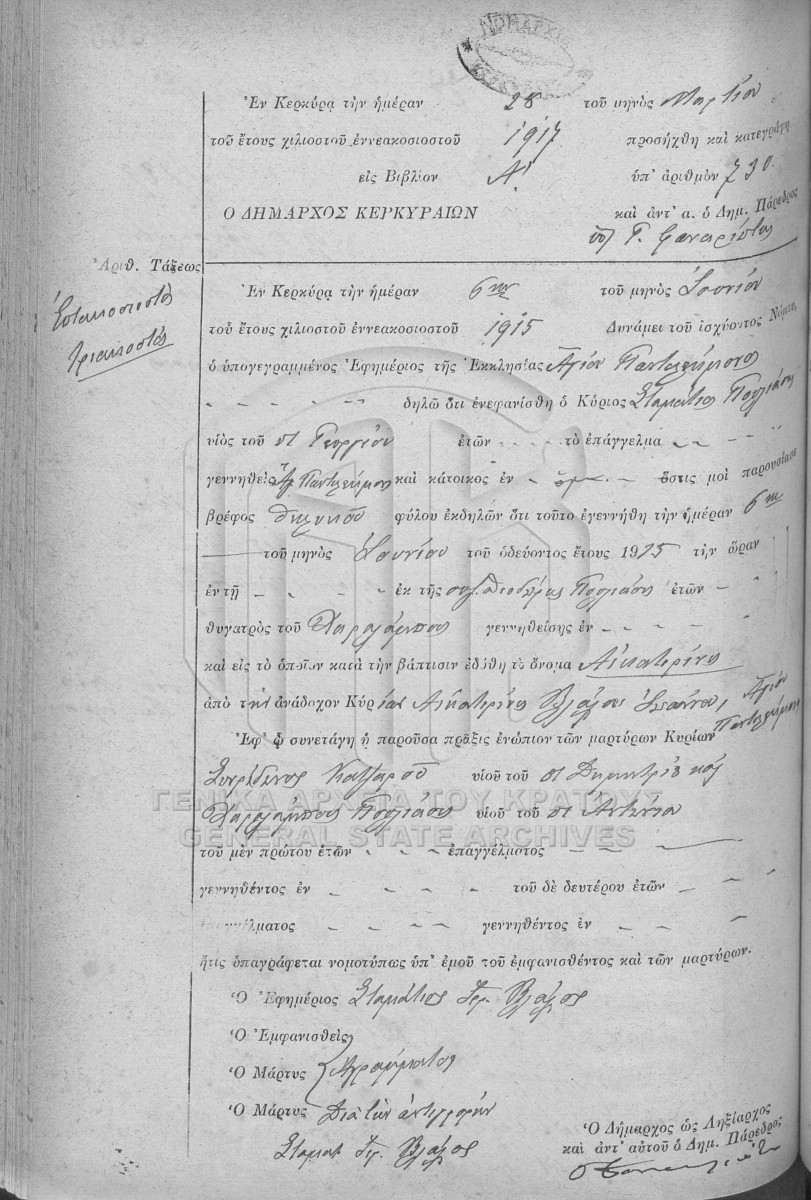 ΝΟΜΑΡΧΙΑ
Ἐν Κερκύρᾳ τὴν ἡμέραν 28 τοῦ μηνὸς Μαρτίου
τοῦ ἔτους χιλιοστοῦ ἐννεακοσιοστοῦ 1917 προσήχθη καὶ κατεγράφη
εἰς Βιβλίον Α! ὑπ' ἀριθμὸν 730
Ο ΔΗΜΑΡΧΟΣ ΚΕΡΚΥΡΑΙΩΝ καὶ ἀντ' α. ὁ Δημ. Πάρεδρος
Γ.
Ἀριθ. Τάξεως
Ἑπτακοσιοστὸς
τριακοστὸς
Ἐν Κερκύρᾳ τὴν ἡμέραν 6ην τοῦ μηνὸς Ἰουνίου
τοῦ ἔτους χιλιοστοῦ ἐννεακοσιοστοῦ 1915 Δυνάμει τοῦ ἰσχύοντος Νόμου,
ὁ ὑπογεγραμμένος Ἐφημέριος τῆς Ἐκκλησίας Ἁγίου Παντελεήμονος
δηλῶ ὅτι ἐνεφανίσθη ὁ Κύριος Σταμάτιος Πουλιάσης
υἱὸς τοῦ Γεωργίου ἐτῶν τὸ ἐπάγγελμα
γεννηθεὶς Ἁγ. Παντελεήμονα καὶ κάτοικος ἐν ὅστις μοὶ παρουσίασε
βρέφος θηλυκοῦ φύλου ἐκδηλῶν ὅτι τοῦτο ἐγεννήθη τὴν ἡμέραν 6ην
τοῦ μηνὸς Ἰουνίου τοῦ ὁδεύοντος ἔτους 1915 τὴν ὥραν
ἐν τῇ ἐκ τῆς συζ. Θεοδώρας Πουλιάση ἐτῶν
θυγατρὸς τοῦ Χαραλάμπους γεννηθείσης ἐν
καὶ εἰς τὸ ὁποῖον κατὰ τὴν βάπτισιν ἐδόθη τὸ ὄνομα Αἰκατερίνη
ἀπὸ τὴν ἀνάδοχον Κυρίαν Αἰκατερίνη Βλάχου Ἰωάννου, Ἁγίου Παντελεήμονος
Ἐφ' ᾧ συνετάγη ἡ παροῦσα πρᾶξις ἐνώπιον τῶν μαρτύρων Κυρίων
Σπυρίδωνος Κατζαροῦ υἱοῦ τοῦ Δημητρίου καὶ
Χαραλάμπους Πουλιάση υἱοῦ τοῦ Ἀντωνίου
τοῦ μὲν πρώτου ἐτῶν ἐπαγγέλματος
γεννηθέντος ἐν τοῦ δὲ δευτέρου ἐτῶν
ἐπαγγέλματος γεννηθέντος ἐν
ἥτις ὑπαγράφεται νομοτύπως ὑπ' ἐμοῦ τοῦ ἐμφανισθέντος καὶ τῶν μαρτύρων.
Ὁ Ἐφημέριος Σταμάτιος Ἱερ. Βλάχος
Ὁ Ἐμφανισθεὶς
Ὁ Μάρτυς Ἀγράμματοι
Ὁ Μάρτυς Διὰ τὴν ἀντιγραφὴν
Σταματ Ἱερ. Βλάχος
Ὁ Δήμαρχος ὡς Ληξίαρχος
καὶ ἀντ' αὐτοῦ ὁ Δημ. Πάρεδρος
ΓΕΝΙΚΑ ΑΡΧΕΙΑ ΤΟΥ ΚΡΑΤΟΥΣ
GENERAL STATE ARCHIVES